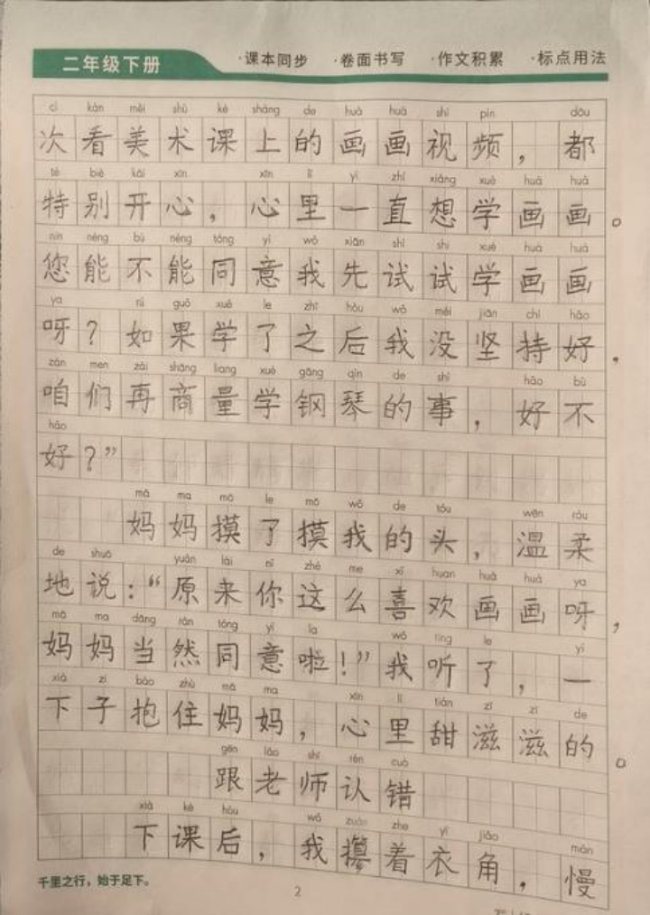 二年级下册 ·课本同步 ·卷面书写 ·作文积累 ·标点用法
cì kàn měi shù kè shàng de huà huà shì pín dōu
次看美术课上的画画视频，都
tè bié kāi xīn xīn lǐ yì zhí xiǎng xué huà huà
特别开心，心里一直想学画画。
nín néng bù néng tóng yì wǒ xiān shì shi xué huà huà
您能不能同意我先试试学画画
ya rú guǒ xué le zhī hòu wǒ méi jiān chí hǎo
呀？如果学了之后我没坚持好，
zán men zài shāng liang xué gāng qín de shì hǎo bù
咱们再商量学钢琴的事，好不
hǎo
好？”
mā ma mō le mō wǒ de tóu wēn róu
妈妈摸了摸我的头，温柔
de shuō yuán lái nǐ zhè me xǐ huan huà huà ya
地说：“原来你这么喜欢画画呀，
mā ma dāng rán tóng yì la wǒ tīng le yí
妈妈当然同意啦！”我听了，一
xià zi bào zhù mā ma xīn lǐ tián zī zī de
下子抱住妈妈，心里甜滋滋的。
gēn lǎo shī rèn cuò
跟老师认错
xià kè hòu wǒ zuàn zhe yī jiǎo màn
下课后，我攥着衣角，慢
千里之行，始于足下。
2